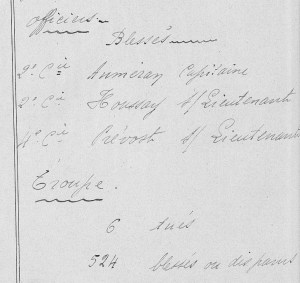 Officiers.
Blessés
2e Cie Auméran Capitaine
2e Cie Houssay s/Lieutenant
4e Cie Prévost s/Lieutenant
Troupe.
6 tués
524 blessés ou disparus